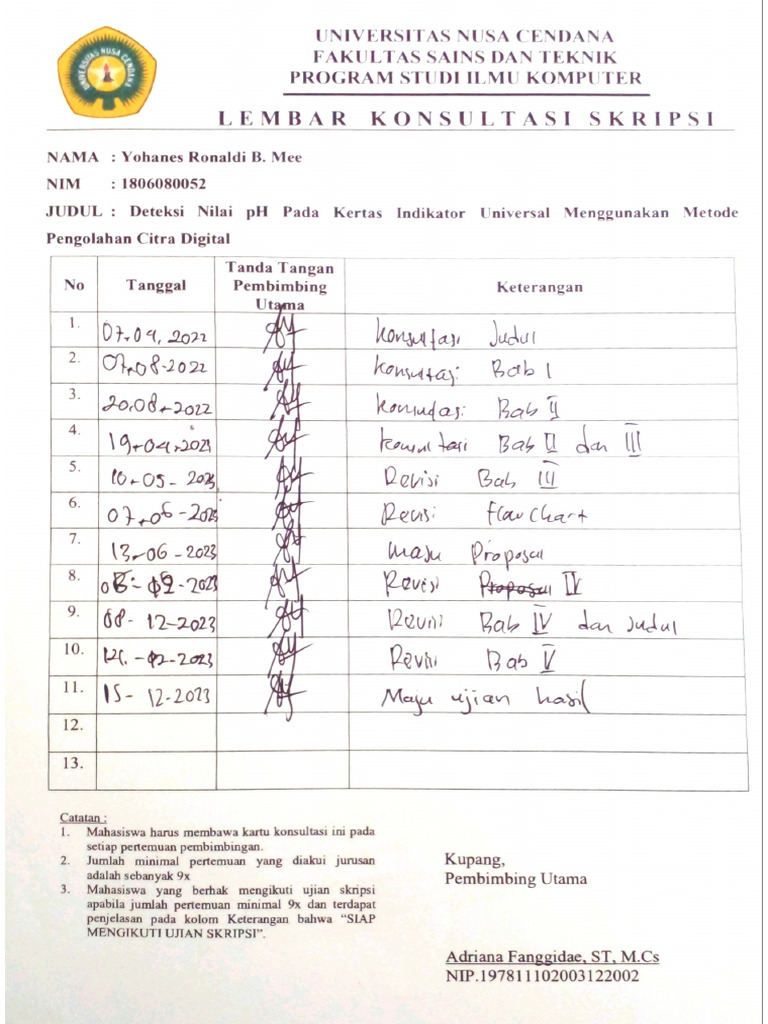 UNIVERSITAS NUSA CENDANA
UNIVERSITAS NUSA CENDANA
FAKULTAS SAINS DAN TEKNIK
PROGRAM STUDI ILMU KOMPUTER
LEMBAR KONSULTASI SKRIPSI
NAMA : Yohanes Ronaldi B. Mee
NIM : 1806080052
JUDUL : Deteksi Nilai pH Pada Kertas Indikator Universal Menggunakan Metode
Pengolahan Citra Digital
No Tanggal Tanda Tangan Pembimbing Utama Keterangan
1. 07.04.2022 Konsultasi Judul
2. 07.08-2022 Konsultasi Bab I
3. 20.08-2022 Konsultasi Bab II
4. 19-04.2023 Konsultasi Bab II dan III
5. 10-05-2023 Revisi Bab III
6. 07.06-2023 Revisi Flowchart
7. 13-06-2023 Maju Proposal
8. 2023 Revisi IV
9. 08-12-2023 Revisi Bab IV dan Judul
10. 12-2023 Revisi Bab V
11. 15-12-2023 Maju ujian hasil
12.
13.
Catatan :
1. Mahasiswa harus membawa kartu konsultasi ini pada
setiap pertemuan pembimbingan.
2. Jumlah minimal pertemuan yang diakui jurusan
adalah sebanyak 9x
3. Mahasiswa yang berhak mengikuti ujian skripsi
apabila jumlah pertemuan minimal 9x dan terdapat
penjelasan pada kolom Keterangan bahwa “SIAP
MENGIKUTI UJIAN SKRIPSI”.
Kupang,
Pembimbing Utama
Adriana Fanggidae, ST, M.Cs
NIP.197811102003122002